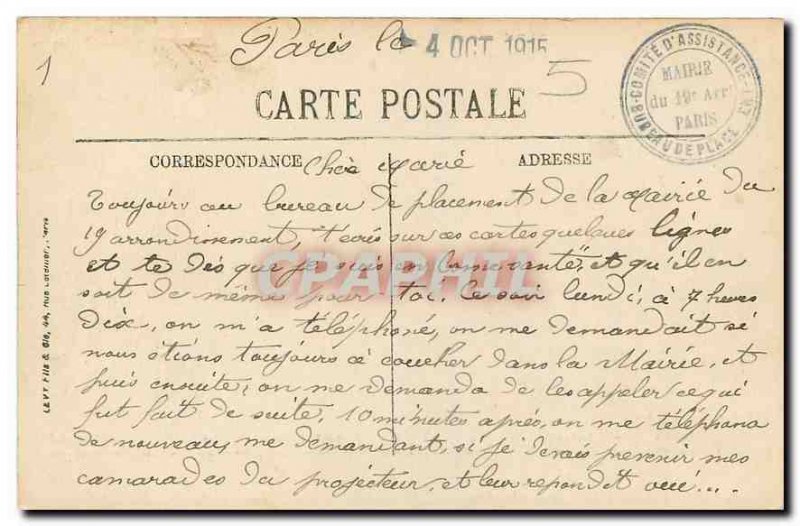 1
Paris le 4 OCT 1915
5
COMITÉ D'ASSISTANCE
BUREAU DE PLACE
MAIRIE
du 19e Arrt
PARIS
CARTE POSTALE
CORRESPONDANCE
ADRESSE
Cher Marie
Toujours au bureau de placement de la Mairie du
19 arrondissement, t'ecris sur ces cartes quelques lignes
et te dis que je suis en bonne santé, et qu'il en
soit de même pour toi. Ce soir lundi, à 7 heures
dix, on m'a téléphoné, on me demandait si
nous étions toujours à coucher dans la Mairie, et
puis ensuite, on me demanda de les appeler ce qui
fut fait de suite, 10 minutes après, on me téléphona
de nouveau, me demandant, si je devais prevenir mes
camarades du projecteur, et leur repondit oui...
CPAPHIL
LEVY Fils & Cie, 44, Rue Letellier, Paris